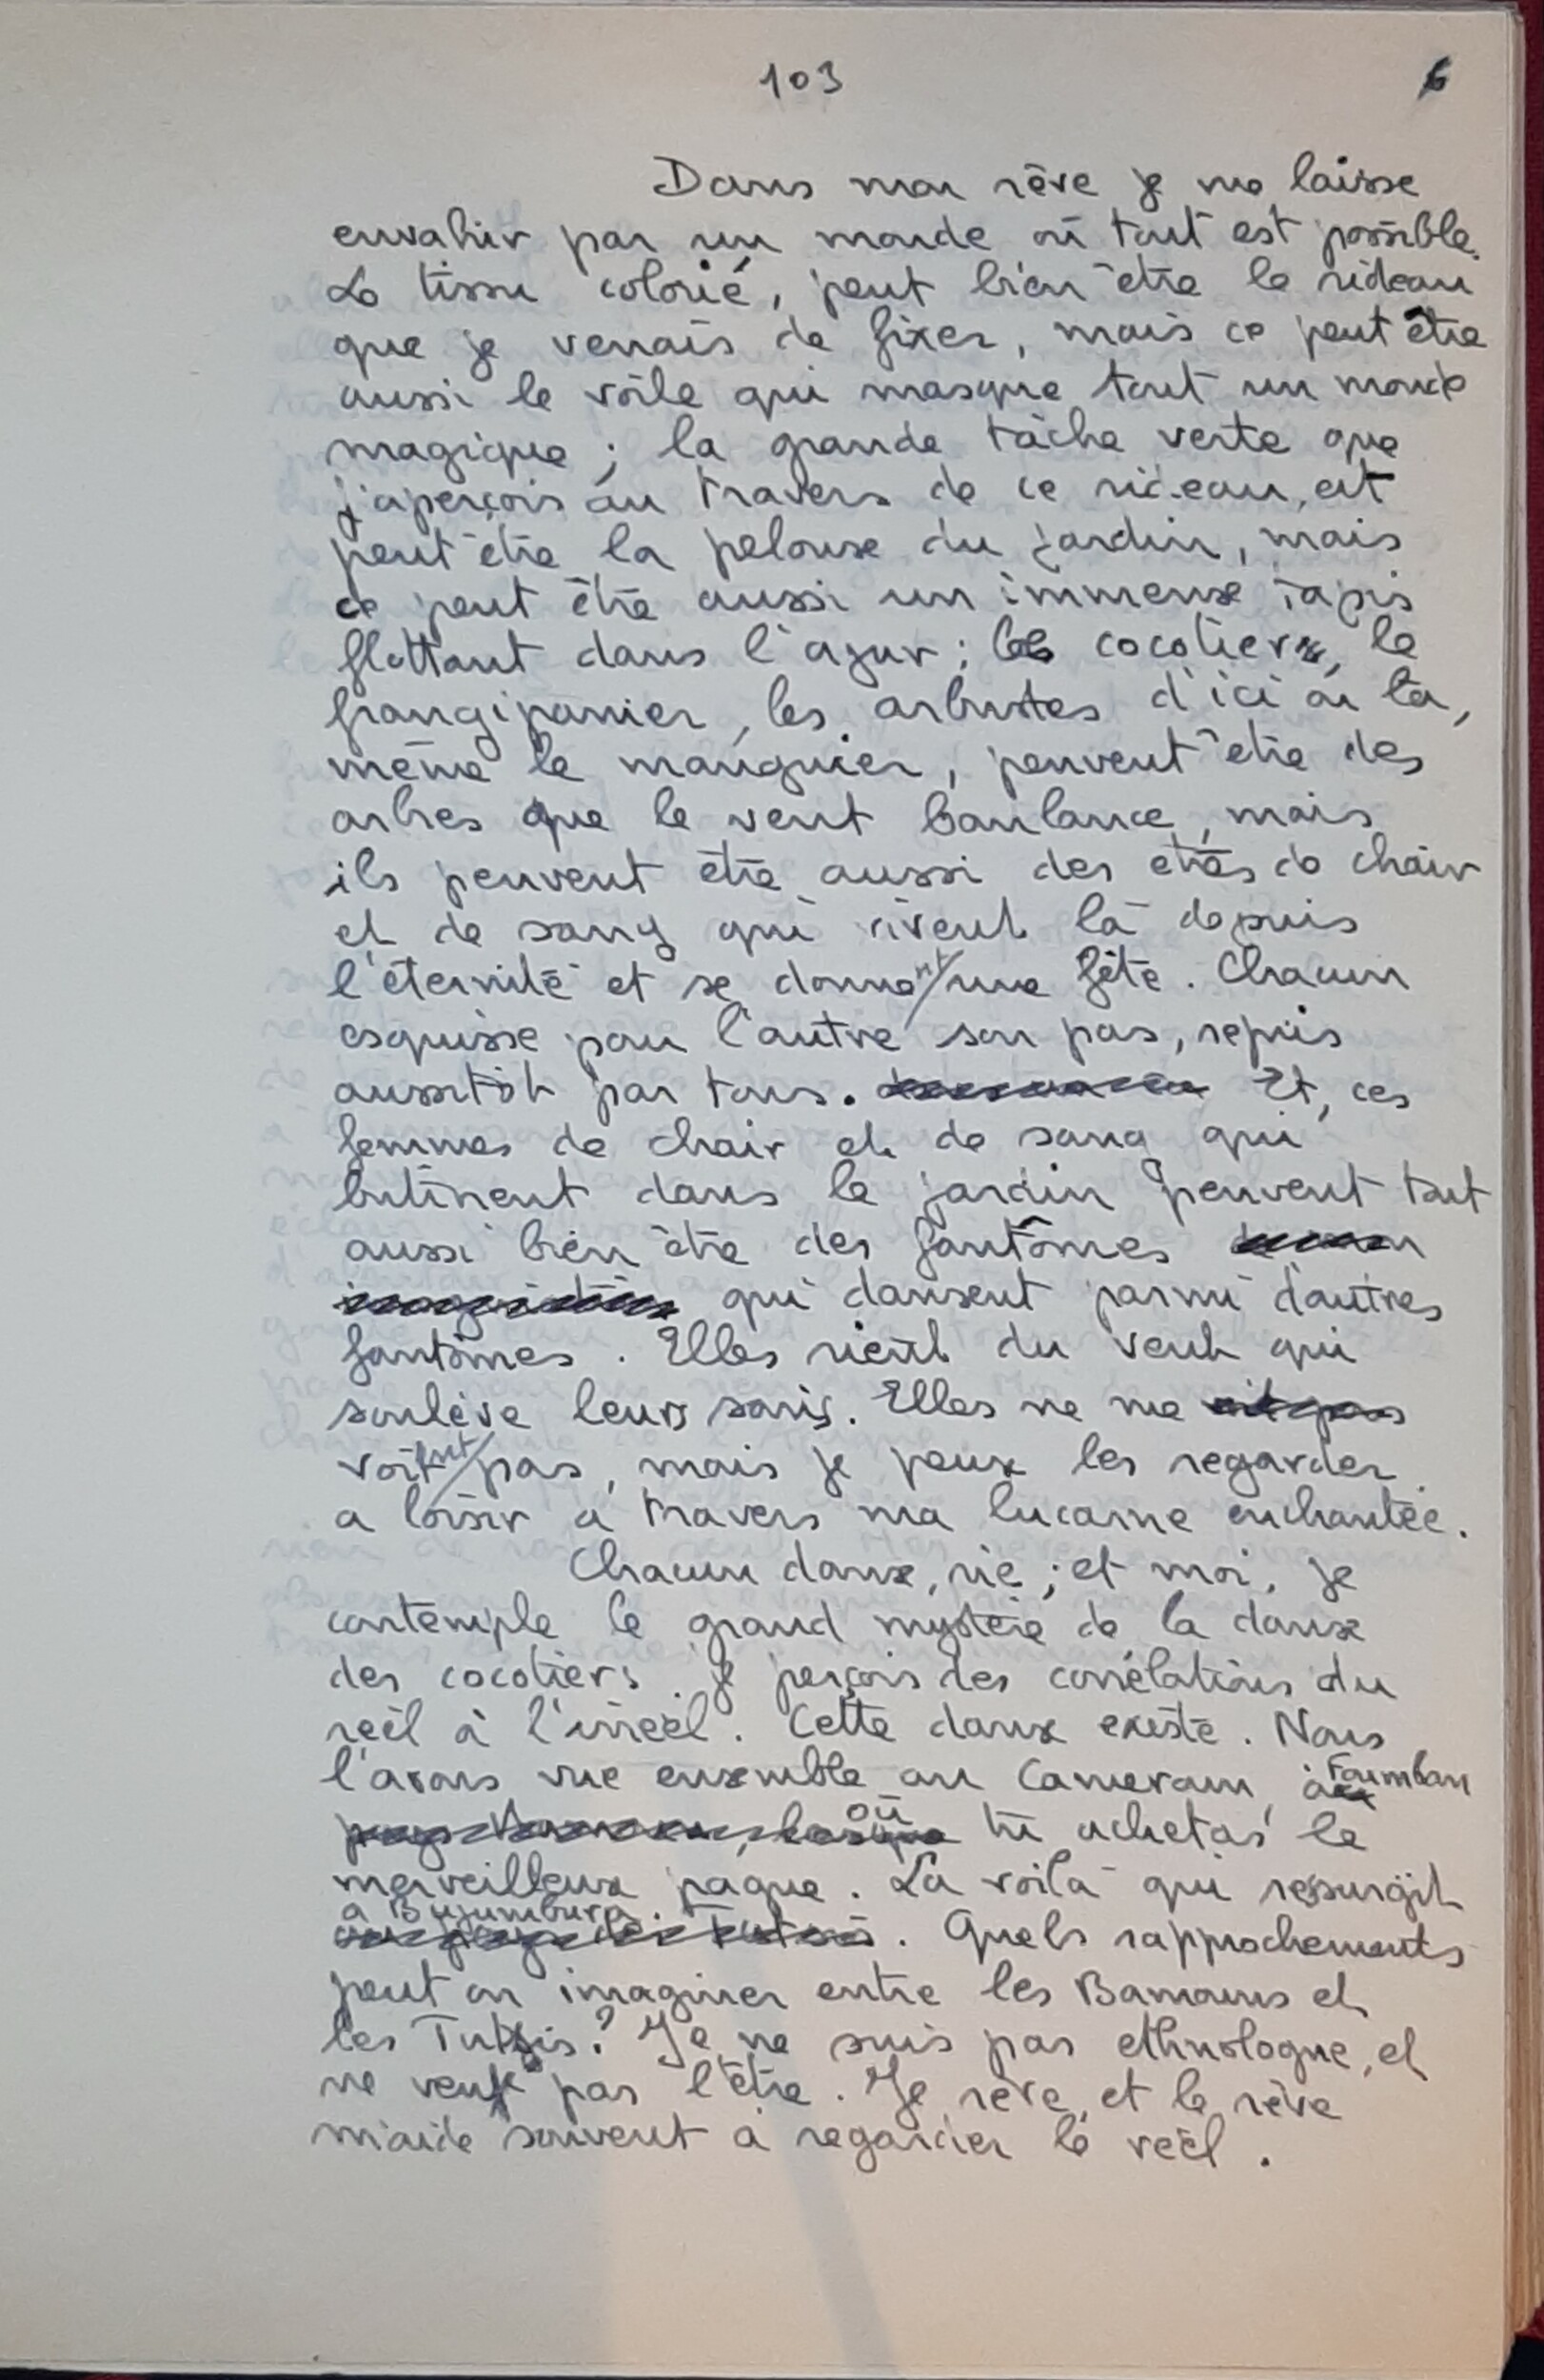 103 6
Dans mon rêve je me laisse
envahir par un monde où tout est possible.
Le tissu colorié, peut bien être le rideau
que je venais de fixer, mais ce peut être
aussi le voile qui masque tout un monde
magique ; la grande tâche verte que
j'aperçois au travers de ce rideau, est
peut être la pelouse du jardin, mais
ce peut être aussi un immense tapis
flottant dans l'azur ; les cocotiers, le
frangipanier, les arbustes d'ici ou là,
même le manguier, peuvent être des
arbres que le vent banlance, mais
ils peuvent être aussi des êtres de chair
et de sang qui vivent là depuis
l'éternité et se donnent une fête. Chacun
esquisse pour l'autre son pas, repris
aussitôt par tous. Et, ces
femmes de chair et de sang qui
butinent dans le jardin peuvent tout
aussi bien être des fantômes
qui dansent parmi d'autres
fantômes. Elles rient du vent qui
soulève leurs saris. Elles ne me
voient pas, mais je peux les regarder
a loisir à travers ma lucarne enchantée.
Chacun danse, rie ; et moi, je
contemple le grand mystère de la danse
des cocotiers. Je perçois des corrélations du
réel à l'irréel. Cette danse existe. Nous
l'avons vue ensemble au Cameroun, à Foumban
où tu achetas le
merveilleux pagne. La voilà qui resurgit
a Bujumbura. Quels rapprochements
peut on imaginer entre les Bamouns et
les Tutsis ? Je ne suis pas ethnologue, et
ne veux pas l'être. Je rêve, et le rêve
m'aide souvent à regarder le réel.